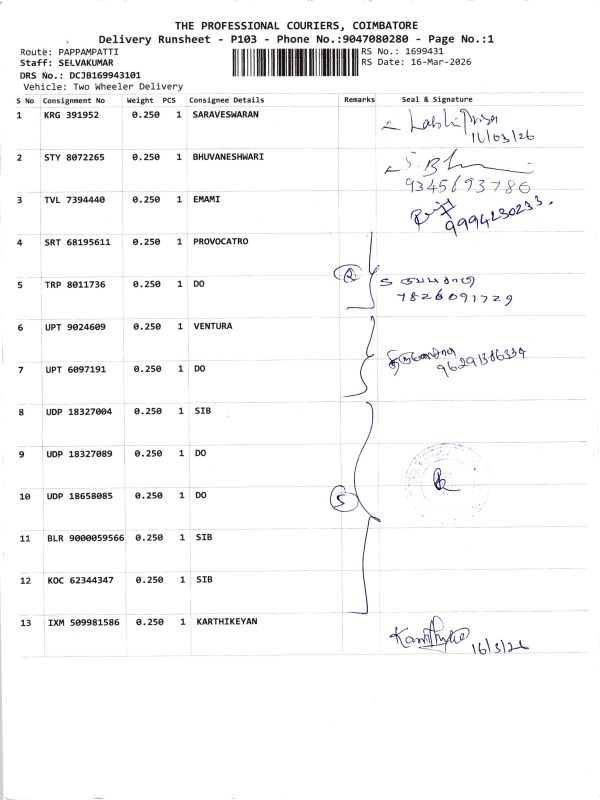 THE PROFESSIONAL COURIERS, COIMBATORE
Delivery Runsheet - P103 - Phone No.:9047080280 - Page No.:1
Route: PAPPAMPATTI RS No.: 1699431
Staff: SELVAKUMAR RS Date: 16-Mar-2026
DRS No.: DCJB169943101
Vehicle: Two Wheeler Delivery
S No Consignment No Weight PCS Consignee Details Remarks Seal & Signature
1 KRG 391952 0.250 1 SARAVESWARAN
16/03/26
2 STY 8072265 0.250 1 BHUVANESHWARI
9345693786
3 TVL 7394440 0.250 1 EMAMI
9994230233.
4 SRT 68195611 0.250 1 PROVOCATRO
5 TRP 8011736 0.250 1 DO
7826091729
6 UPT 9024609 0.250 1 VENTURA
7 UPT 6097191 0.250 1 DO
8 UDP 18327004 0.250 1 SIB
9 UDP 18327089 0.250 1 DO
10 UDP 18658085 0.250 1 DO
5
11 BLR 9000059566 0.250 1 SIB
12 KOC 62344347 0.250 1 SIB
13 IXM 509981586 0.250 1 KARTHIKEYAN
16/3/26